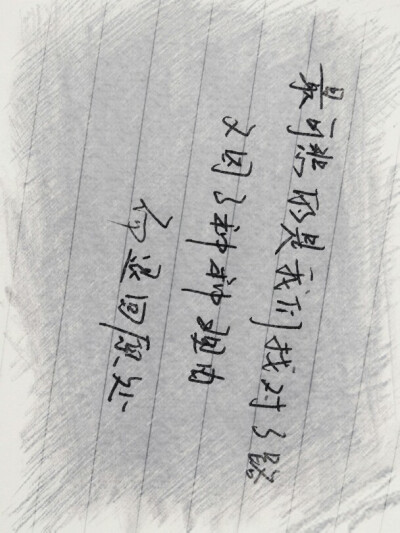 最可悲的是我们找对了路
又因了种种理由
退回原处